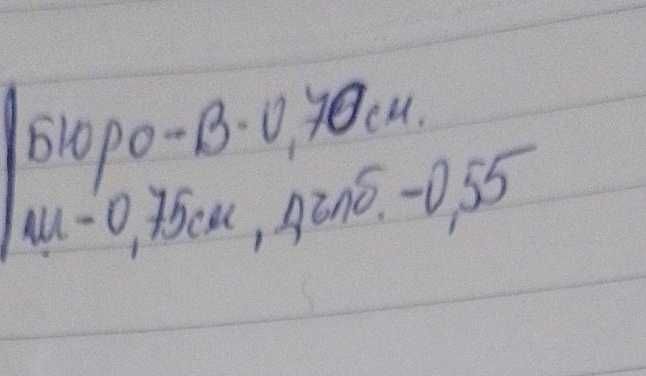 Бюро-В-0,70см.
ш-0,75см, дълб.-0,55